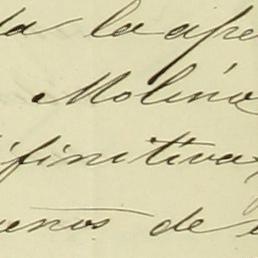 la ape
Molina
ifinitiva,
enos de